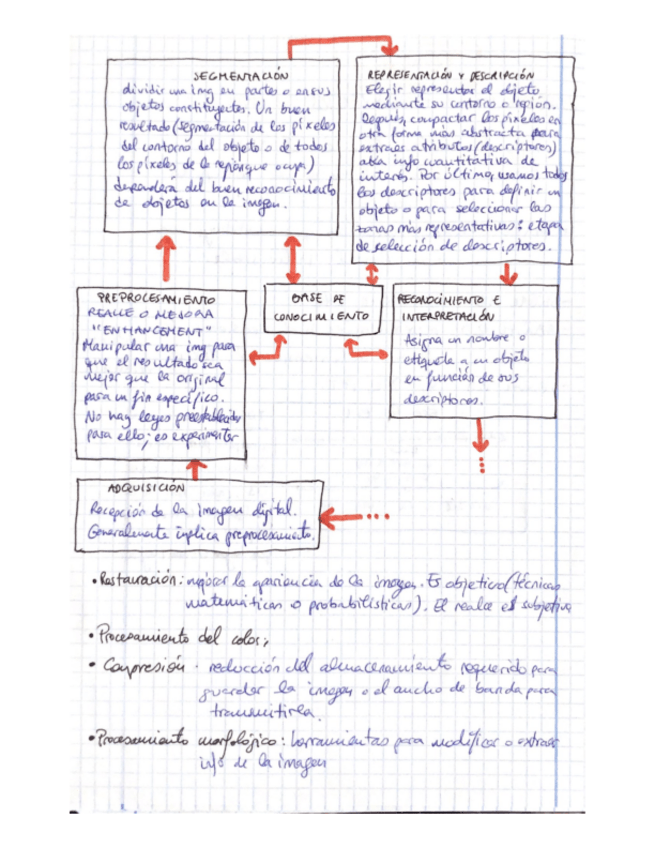 SEGMENTACIÓN
dividir una img en partes o en sus
objetos constituyentes. Un buen
resultado (segmentación de los píxeles
del contorno del objeto o de todos
los píxeles de la región que ocupa)
dependerá del buen reconocimiento
de objetos en la imagen.
REPRESENTACIÓN Y DESCRIPCIÓN
Elegir representar el objeto
mediante su contorno o región.
Después, compactar los píxeles en
otra forma más abstracta para
extraer atributos (descriptores)
info cuantitativa de
interés. Por último, usamos todos
los descriptores para definir un
objeto o para seleccionar las
zonas más representativas: etapa
de selección de descriptores.
PREPROCESAMIENTO
REALCE O MEJORA
"ENHANCEMENT"
Manipular una img para
que el resultado sea
mejor que la original
para un fin específico.
No hay leyes preestablecidas
para ello; es experimentar
BASE DE
CONOCIMIENTO
RECONOCIMIENTO E
INTERPRETACIÓN
Asigna un nombre o
etiqueta a un objeto
en función de sus
descriptores.
ADQUISICIÓN
Recepción de la imagen digital.
Generalmente implica preprocesamiento.
• Restauración: mejorar la apariencia de la imagen. Es objetivo (técnicas
matemáticas o probabilísticas). El realce es subjetivo
• Procesamiento del color;
• Compresión: reducción del almacenamiento requerido para
guardar la imagen o el ancho de banda para
transmitirla.
• Procesamiento morfológico: herramientas para modificar o extraer
info de la imagen